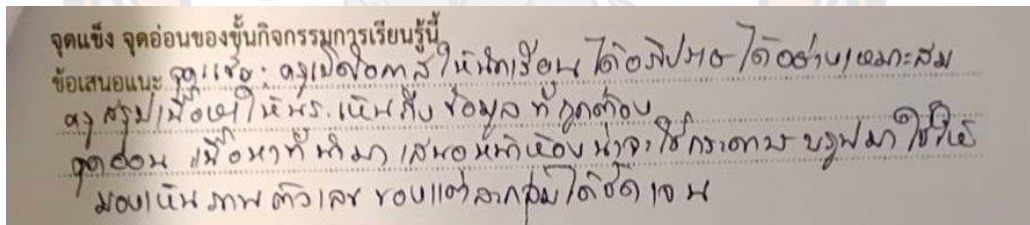 จุดแข็ง จุดอ่อนของขั้นกิจกรรมการเรียนรู้นี้
ข้อเสนอแนะ จุดแข็ง : ครูเปิดโอกาสให้นักเรียนได้อภิปรายได้อย่างเหมาะสม
ครูสรุปเนื้อหาให้นร. เห็นถึงข้อมูลที่ถูกต้อง
จุดอ่อน เนื้อหาที่นำมาเสนอหน้าห้องน่าจะใช้กระดาษบรู๊ฟมาใช้ให้
มองเห็นภาพตัวเลขของแต่ละกลุ่มได้ชัดเจน